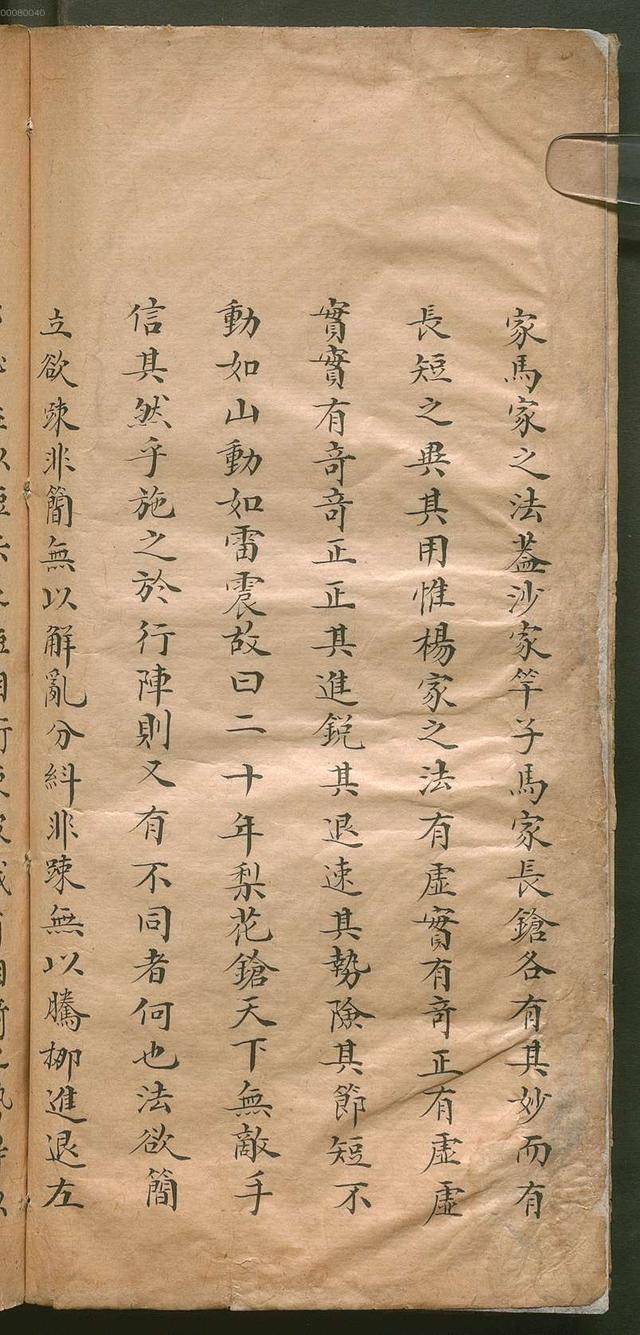 00080040
家馬家之法葢沙家竿子馬家長鎗各有其妙而有
長短之異其用惟楊家之法有虛實有竒正有虛虛
實實有竒竒正正其進銳其退速其勢險其節短不
動如山動如雷震故曰二十年梨花鎗天下無敵手
信其然乎施之於行陣則又有不同者何也法欲簡
立欲踈非簡無以解亂分糾非踈無以騰挪進退左